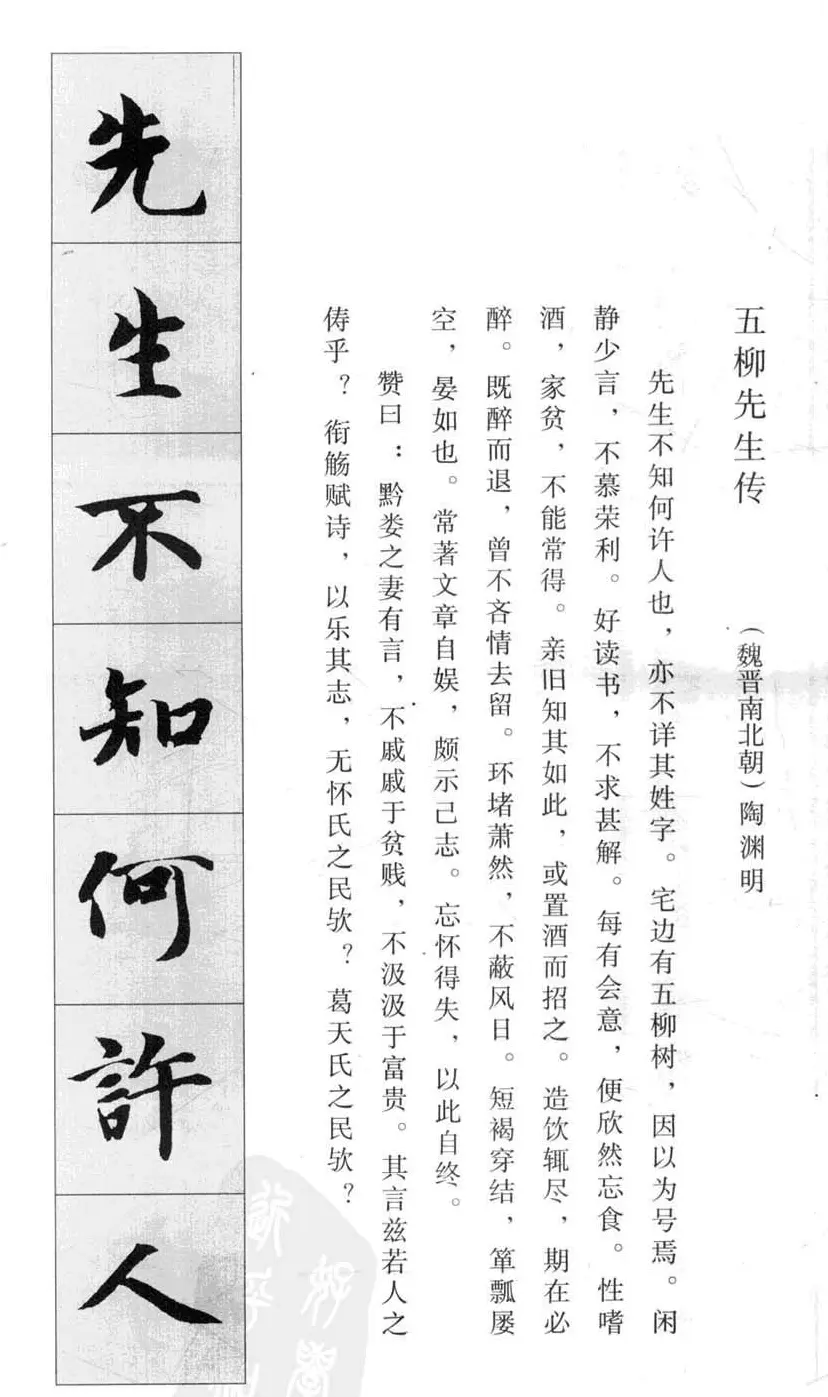 五柳先生传
（魏晋南北朝）陶渊明
先生不知何许人也，亦不详其姓字。宅边有五柳树，因以为号焉。闲
静少言，不慕荣利。好读书，不求甚解。每有会意，便欣然忘食。性嗜
酒，家贫，不能常得。亲旧知其如此，或置酒而招之。造饮辄尽，期在必
醉。既醉而退，曾不吝情去留。环堵萧然，不蔽风日。短褐穿结，箪瓢屡
空，晏如也。常著文章自娱，颇示己志。忘怀得失，以此自终。
赞曰：黔娄之妻有言，不戚戚于贫贱，不汲汲于富贵。其言兹若人之
俦乎？衔觞赋诗，以乐其志，无怀氏之民欤？葛天氏之民欤？
先生不知何許人